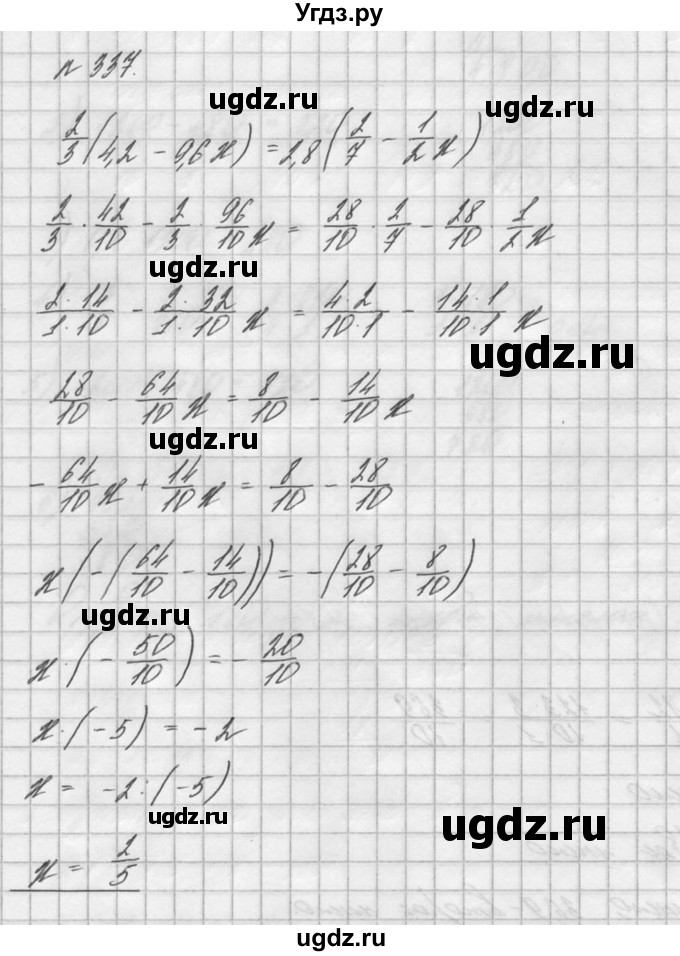 Угдз.ру
№ 337.
ugdz.ru
ugdz.ru
2/3 (4,2 - 9,6x) = 2,8 (2/7 - 1/2 x)
2/3 · 42/10 - 2/3 · 96/10 x = 28/10 · 2/7 - 28/10 · 1/2 x
ugdz.ru
2·14/1·10 - 2·32/1·10 x = 4·2/10·1 - 14·1/10·1 x
ugdz.ru
28/10 - 64/10 x = 8/10 - 14/10 x
ugdz.ru
- 64/10 x + 14/10 x = 8/10 - 28/10
x (-(64/10 - 14/10)) = -(28/10 - 8/10)
ugdz.ru
x · (- 50/10) = - 20/10
x · (-5) = -2
x = -2 : (-5)
ugdz.ru
ugdz.ru
x = 2/5
ugdz.ru